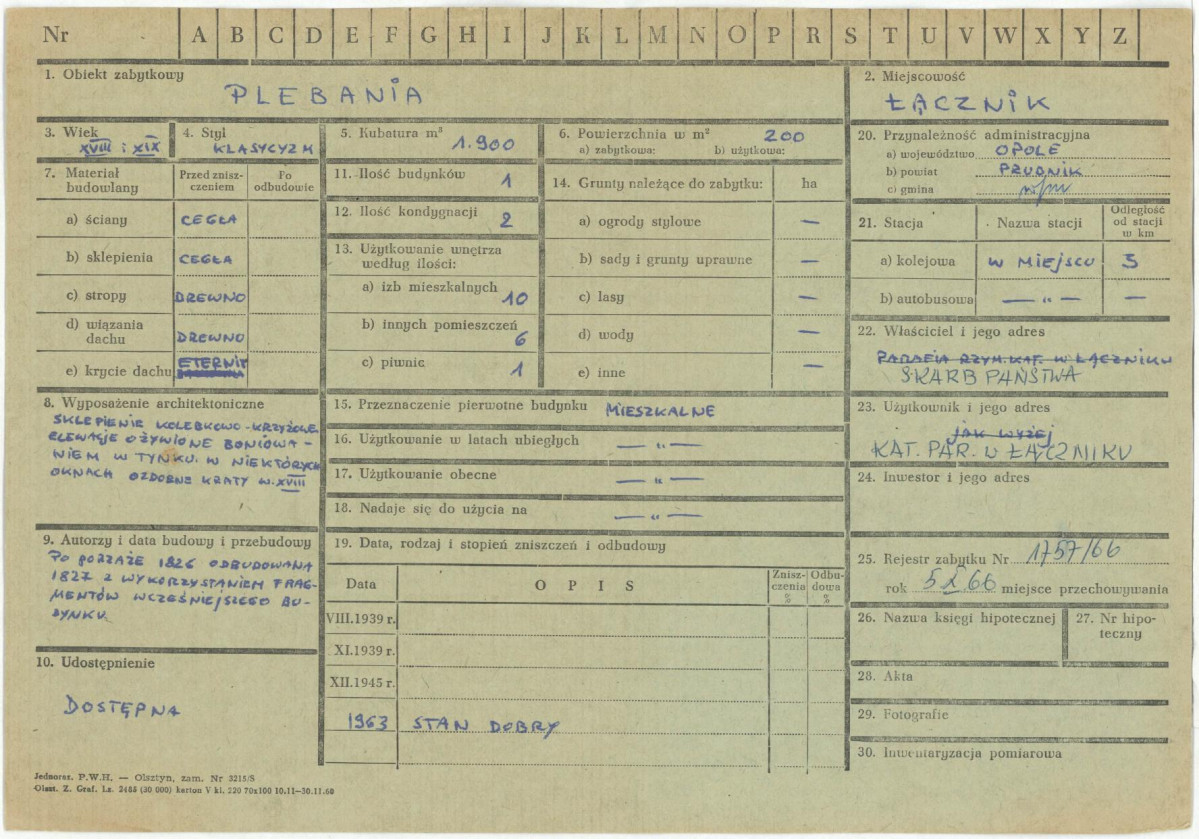 Nr A B C D E F G H I J K L M N O P R S T U V W X Y Z
1. Obiekt zabytkowy
PLEBANIA
2. Miejscowość
ŁĄCZNIK
3. Wiek
XVIII i XIX
4. Styl
KLASYCYZM
5. Kubatura m³
1.900
6. Powierzchnia w m² 200
a) zabytkowa: b) użytkowa:
20. Przynależność administracyjna
a) województwo OPOLE
b) powiat PRUDNIK
c) gmina
7. Materiał budowlany
Przed zniszczeniem
Po odbudowie
a) ściany CEGŁA
b) sklepienia CEGŁA
c) stropy DREWNO
d) wiązania dachu DREWNO
e) krycie dachu ETERNIT
11. Ilość budynków 1
12. Ilość kondygnacji 2
13. Użytkowanie wnętrza
według ilości:
a) izb mieszkalnych 10
b) innych pomieszczeń 6
c) piwnic 1
14. Grunty należące do zabytku: ha
a) ogrody stylowe —
b) sady i grunty uprawne —
c) lasy —
d) wody —
e) inne —
21. Stacja Nazwa stacji Odległość od stacji w km
a) kolejowa W MIEJSCU 3
b) autobusowa — „ — —
22. Właściciel i jego adres
PARAFIA RZYM. KAT. W ŁĄCZNIKU
SKARB PAŃSTWA
8. Wyposażenie architektoniczne
SKLEPIENIE KOLEBKOWO-KRZYŻOWE
ELEWACJE OŻYWIONE BONIOWA-
NIEM W TYNKU. W NIEKTÓRYCH
OKNACH OZDOBNE KRATY W. XVIII
15. Przeznaczenie pierwotne budynku MIESZKALNE
16. Użytkowanie w latach ubiegłych — „ —
17. Użytkowanie obecne — „ —
18. Nadaje się do użycia na — „ —
23. Użytkownik i jego adres
JAK WYŻEJ
KAT. PAR. W ŁĄCZNIKU
24. Inwestor i jego adres
9. Autorzy i data budowy i przebudowy
PO POŻAŻE 1826 ODBUDOWANA
1827 Z WYKORZYSTANIEM FRAG-
MENTÓW WCZEŚNIEJSZEGO BU-
DYNKU.
19. Data, rodzaj i stopień zniszczeń i odbudowy
Data OPIS Zniszczenia % Odbudowa %
VIII.1939 r.
XI.1939 r.
XII.1945 r.
1963 STAN DOBRY
25. Rejestr zabytku Nr 1757/66
rok 5 X 66 miejsce przechowywania
26. Nazwa księgi hipotecznej
27. Nr hipoteczny
10. Udostępnienie
DOSTĘPNA
28. Akta
29. Fotografie
30. Inwentaryzacja pomiarowa
Jednoraz. P.W.H. — Olsztyn, zam. Nr 3215/S
Olszt. Z. Graf. Lz. 2485 (30 000) karton V kl. 220 70x100 10.11—30.11.60